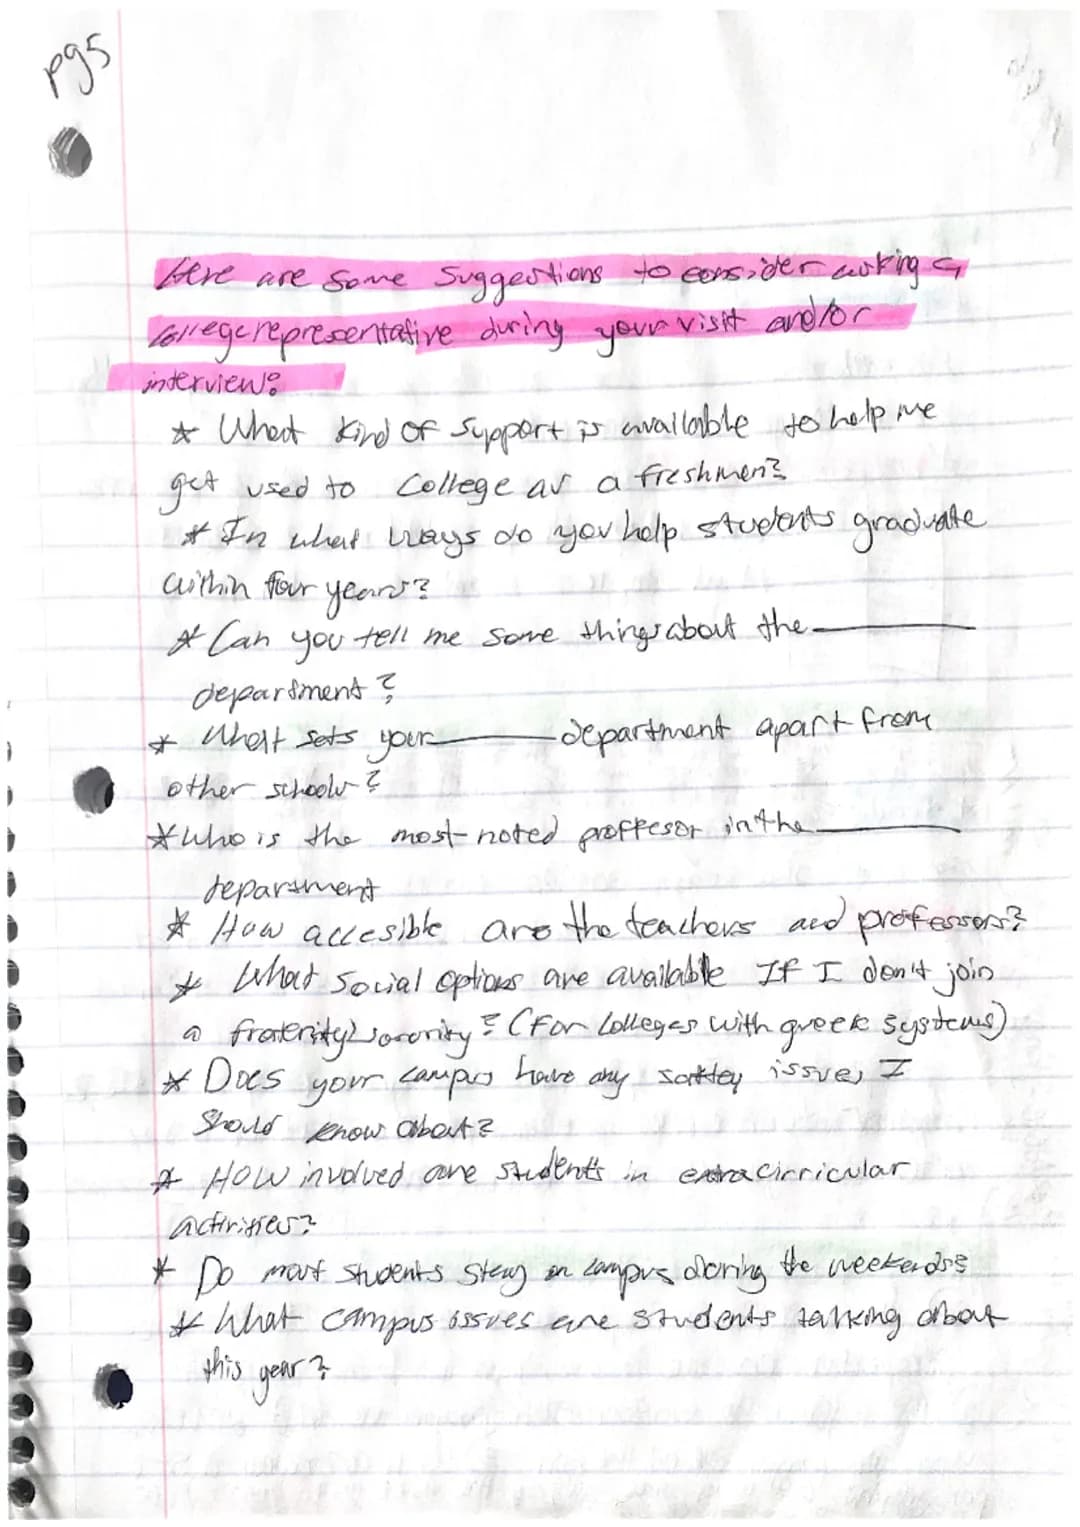 pg5
Here are some suggestions to consider asking a
college representative during your visit and/or
interview:
* What kind of support is available to help me
get used to college as a freshmen?
* In what ways do you help students graduate
within four years?
* Can you tell me some things about the ______
department?
* What sets your ______ department apart from
other schools?
* Who is the most-noted proffesor in the ______
department
* How accesible are the teachers and professors?
* What social options are available If I don't join
a fraterity/sorority? (For colleges with greek systems)
* Does your campus have any issues I
should know about?
* How involved are students in extracirricular
activities?
* Do most students stay on campus during the weekends?
* What campus issues are students talking about
this year?